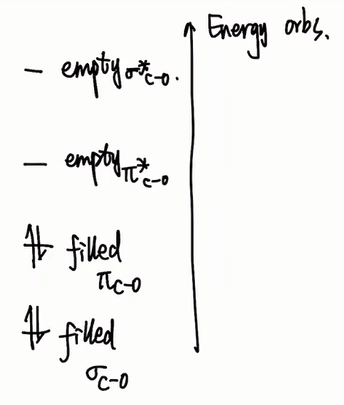 Energy orbs.
empty σ*c-o.
empty π*c-o
filled
πc-o
filled
σc-o